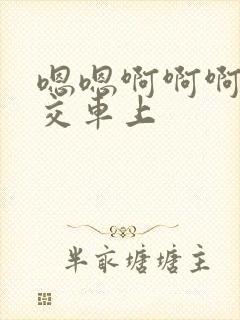 嗯嗯啊啊啊
交车上
半亩塘塘主